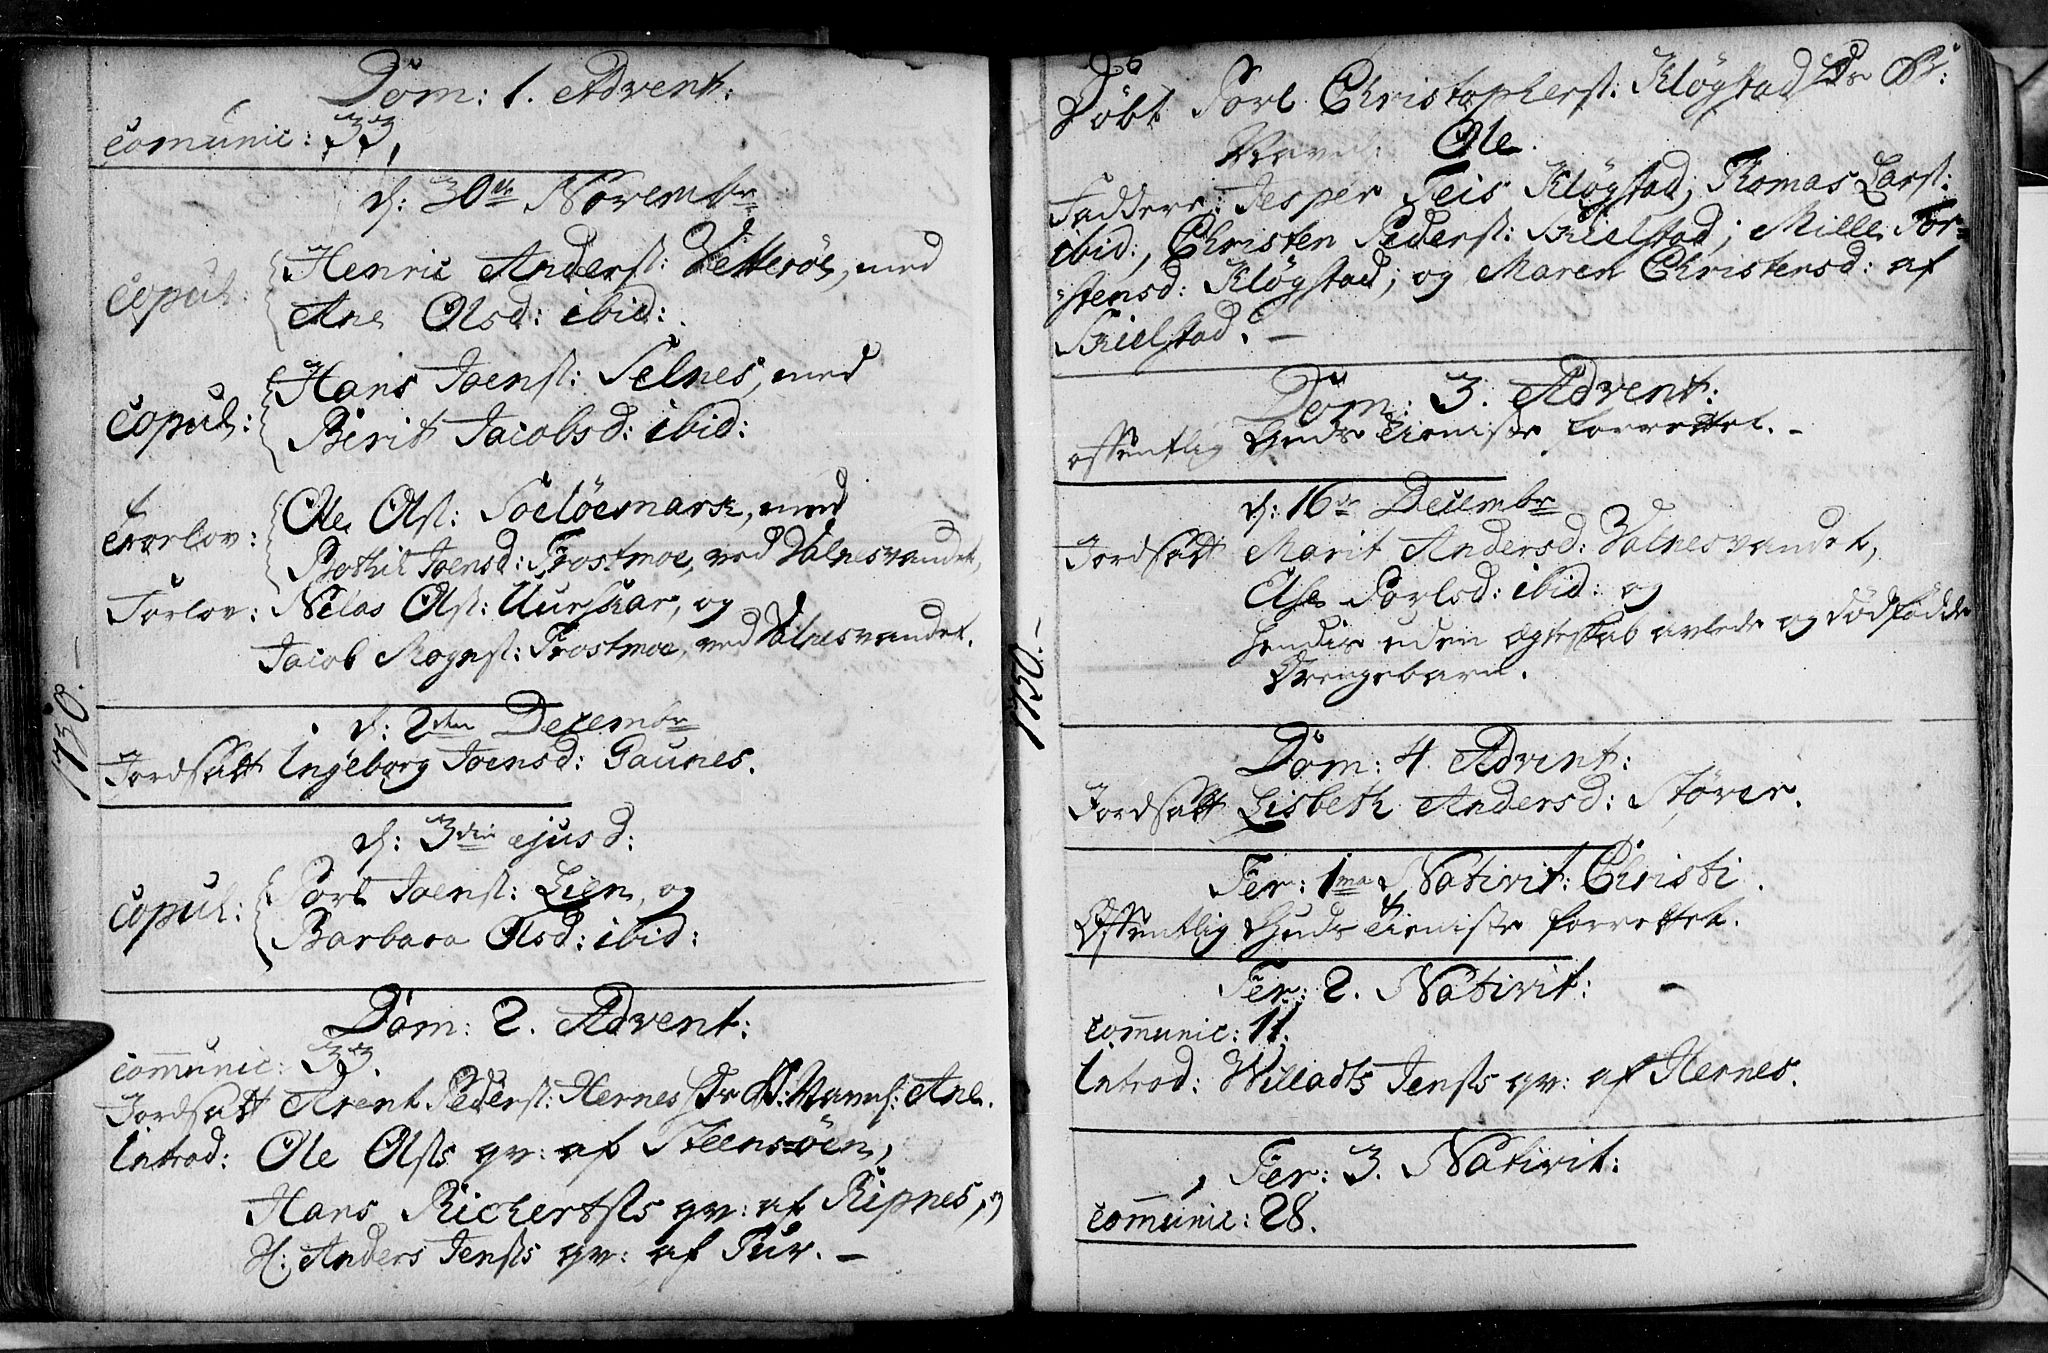 1730.
Dom: 1. Advent:
comunic: 33,
d: 30te Novembr
Copul: Henric Anderss: Vetterøe, med
Ane Olsd: ibid:
Copul: Hans Joenss: Selnes, med
Berit Jacobsd: ibid:
Trorlov: Ole Olss: Soeløesmark, med
Bothil Joensd: Frostmoe, ved Valnesvandet,
Forlov: Nilas Olss: Uurskar, og
Jacob Mognss: Frostmoe, ved Valnesvandet.
d: 2den Decembr
Jordsatt Ingeborg Joensd: Gaunes.
d: 3die ejusd:
Copul: Povl Joenss: Lien, og
Barbara Olsd: ibid:
Dom: 2. Advent:
communic: 33.
Jordsatt Arent Pederss: Hernes Navnl: Ane.
Introd: Ole Olsøs qv: af Steensøen,
Hans Richertsøs qv: af Ripnes, og
H: Anders Jensøs qv: af Tur. –
1730.–
Døbt Povl Christopherss: Kløgstad
Navnl: Ole.
Faddere: Jesper Teis Kløgstad, Thomas Larss:
ibid:, Christen Pederss: Skielstad; Mille Tor=
=stensd: Kløgstad; og Maren Christensd: af
Skielstad. –
Dom: 3. Advent:
offentlig Guds Tieniste forrettet. –
d: 16de Decembr
Jordsatt Marit Andersd: Valnesvandet,
Else Povlsd: ibid: og
hendis uden Ægteskab avlede og dødfødde
Drengebarn.
Dom: 4. Advent:
Jordsatt Lisbeth Andersd: Støver.
Fer: 1ma Nativit: Christi.
Offentlig Guds Tieniste forrettet.
Fer: 2. Nativit:
communic: 11.
Introd: Willadts Jensøs qv: af Hernes.
Fer: 3. Nativit:
communic: 28.